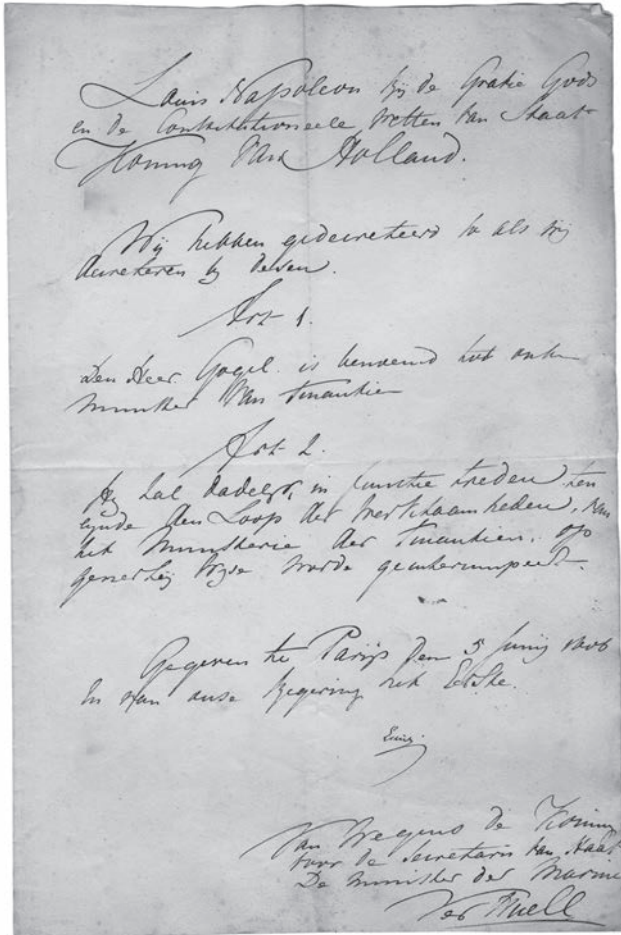 Louis Napoleon bij de Gratie Gods
en de Constitutioneele Wetten van Staat
Koning van Holland.
Wij hebben gedecreteerd zo als wij
decreteren bij deesen.
Art 1.
Den Heer Gogel is benoemd tot onzen
Minister van Finantien
Art 2.
Hij zal dadelijk in functie treden, ten
eynde den Loop der werkzaamheden, van
het Ministerie der Finantien, op
generleij wijze worde geinterrumpeert.
Gegeven te Parijs den 5 Junij 1806
En van onse Regering het Eerste.
Louis.
Van Wegens de Koning
voor de Secretaris van Staat
De Minister der Marine
Ver Huell